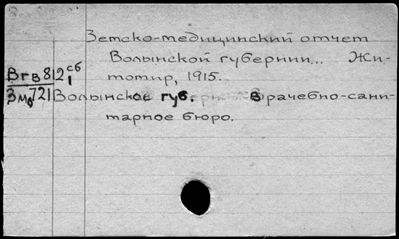 Земско-медицинский отчет
Волынской губернии... Жи-
томир, 1915.
Вгв812 сб
1
Змд721 Волынское губ. Врачебно-сани-
тарное бюро.